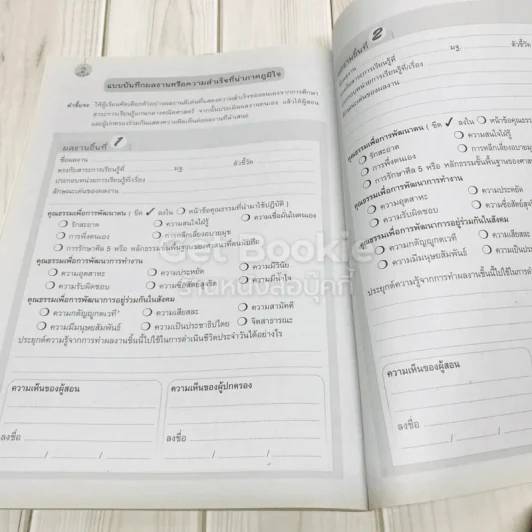 แบบบันทึกผลงานหรือความสำเร็จที่น่าภาคภูมิใจ
คำชี้แจง ให้ผู้เรียนคัดเลือกตัวอย่างผลงานดีเด่นที่แสดงความสำเร็จของตนเองจากการศึกษา
สาระการเรียนรู้แกนกลางคณิตศาสตร์ จากนั้นประเมินผลงานตนเอง แล้วให้ผู้สอน
และผู้ปกครองร่วมกันแสดงความคิดเห็นต่อผลงานที่นำเสนอ
ผลงานชิ้นที่ 1
ชื่อผลงาน
ตรงกับสาระการเรียนรู้ที่ มฐ. ตัวชี้วัด
ประกอบหน่วยการเรียนรู้ที่/เรื่อง
ลักษณะเด่นของผลงาน
คุณธรรมเพื่อการพัฒนาตน ( ขีด ✓ ลงใน หน้าข้อคุณธรรมที่นำมาใช้ปฏิบัติ )
รักสะอาด ความสนใจใฝ่รู้ ความเชื่อมั่นในตนเอง
การพึ่งตนเอง การหลีกเลี่ยงอบายมุข
การรักษาศีล 5 หรือ หลักธรรมขั้นพื้นฐานของศาสนาที่ตนนับถือ
คุณธรรมเพื่อการพัฒนาการทำงาน
ความอุตสาหะ ความประหยัด ความมีวินัย
ความรับผิดชอบ ความซื่อสัตย์สุจริต ความมีน้ำใจ
คุณธรรมเพื่อการพัฒนาการอยู่ร่วมกันในสังคม
ความกตัญญูกตเวที ความเสียสละ ความสามัคคี
ความมีมนุษยสัมพันธ์ ความเป็นประชาธิปไตย จิตสาธารณะ
ประยุกต์ความรู้จากการทำผลงานชิ้นนี้ไปใช้ในการดำเนินชีวิตประจำวันได้อย่างไร
ความเห็นของผู้สอน
ลงชื่อ
/ /
ความเห็นของผู้ปกครอง
ลงชื่อ
/ /
Get Bookie
ร้านหนังสือบุ๊คกี้
ผลงานชิ้นที่ 2
มฐ. ตัวชี้วัด
คุณธรรมเพื่อการพัฒนาตน ( ขีด ✓ ลงใน หน้าข้อคุณธรรม
รักสะอาด ความสนใจใฝ่รู้
การพึ่งตนเอง การหลีกเลี่ยงอบายมุข
การรักษาศีล 5 หรือ หลักธรรมขั้นพื้นฐานของศาสนา
คุณธรรมเพื่อการพัฒนาการทำงาน
ความอุตสาหะ ความประหยัด
ความรับผิดชอบ ความซื่อสัตย์สุจริต
คุณธรรมเพื่อการพัฒนาการอยู่ร่วมกันในสังคม
ความกตัญญูกตเวที ความเสียสละ
ความมีมนุษยสัมพันธ์ ความเป็นประ
ประยุกต์ความรู้จากการทำผลงานชิ้นนี้ไปใช้ในการดำ
ความเห็นของผู้สอน
ลงชื่อ
/ /